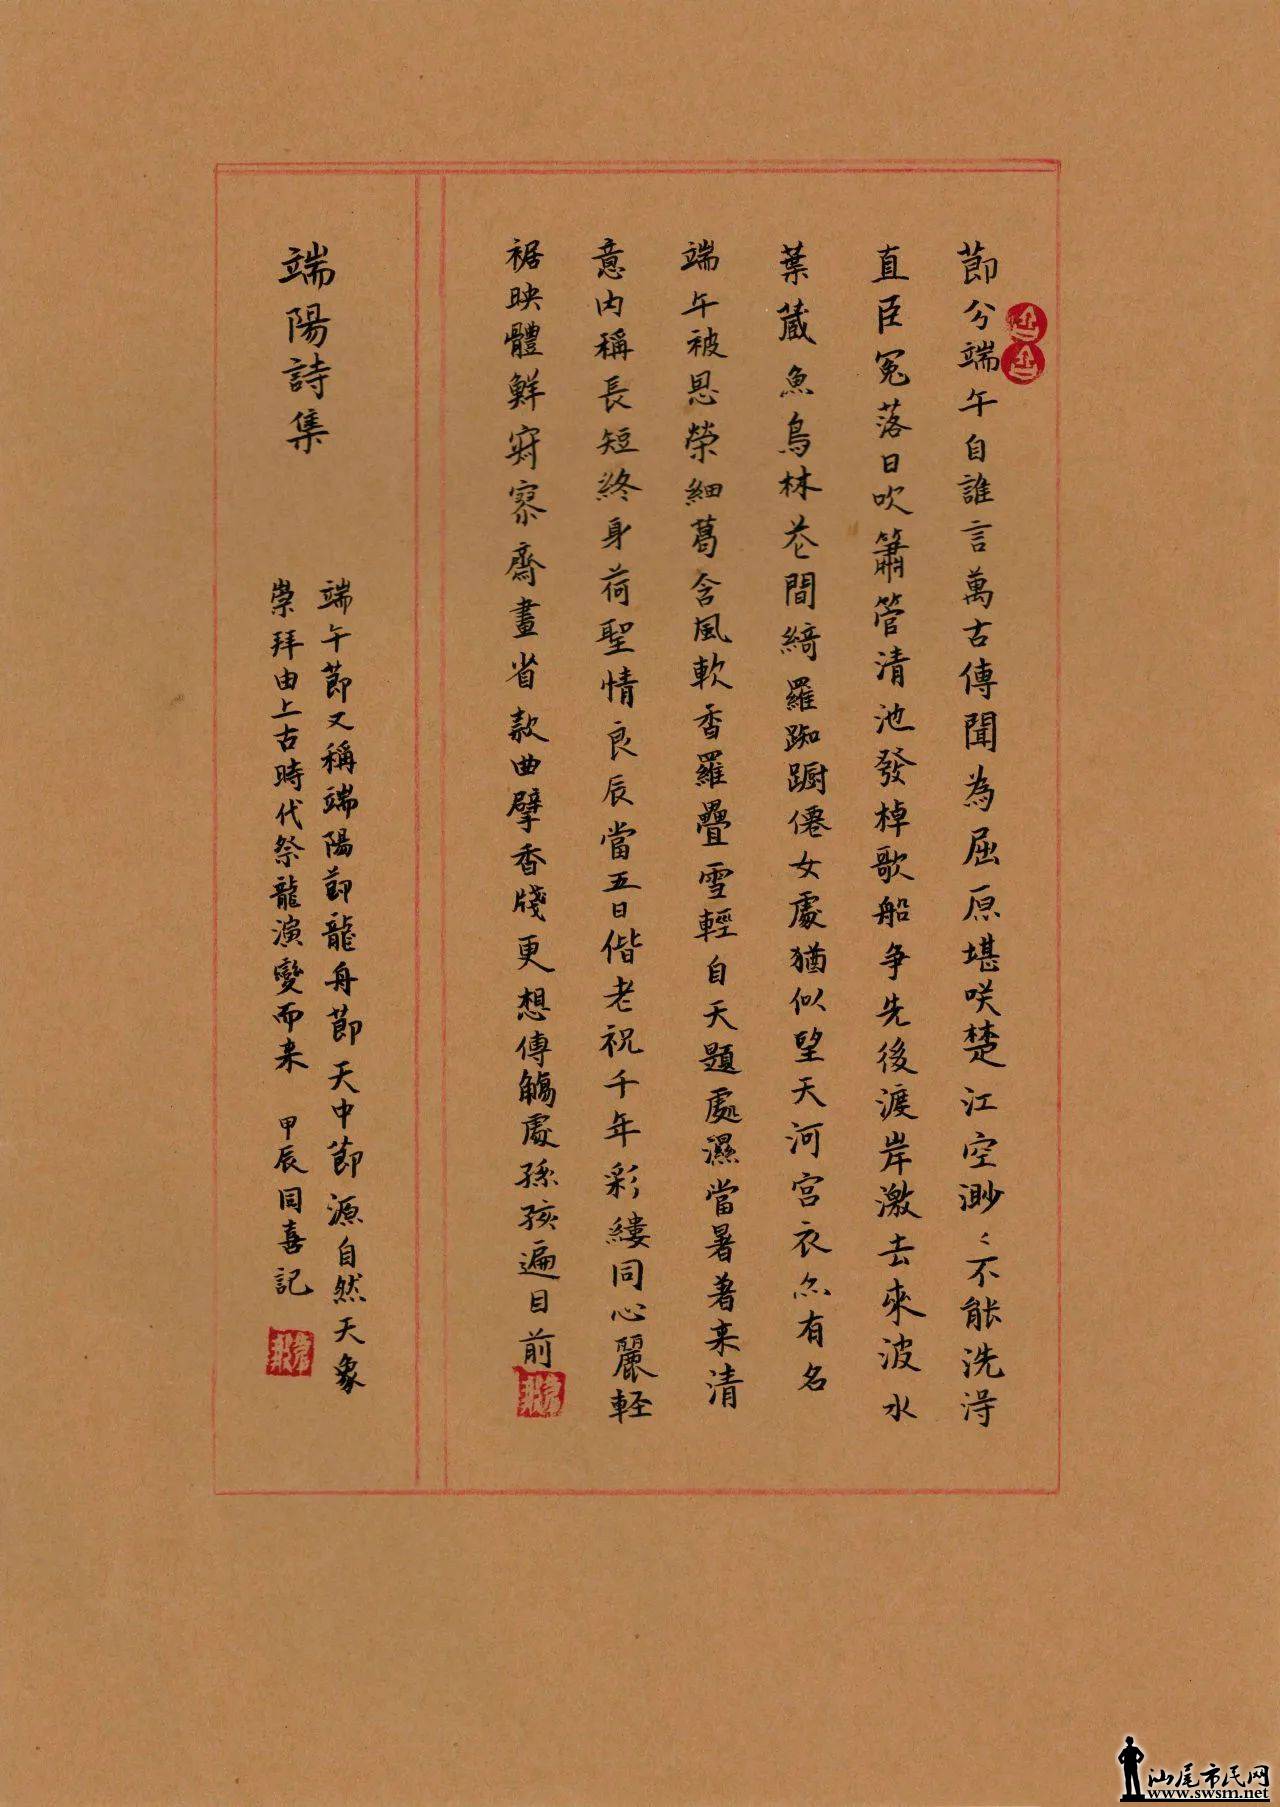 節分端午自誰言萬古傳聞為屈原堪咲楚江空渺〻不能洗淂
直臣冤落日吹簫管清池發棹歌船争先後渡岸激去來波水
葉藏魚鳥林花間綺羅踟蹰僊女處猶似望天河宮衣亦有名
端午被恩榮細葛含風軟香羅疊雪輕自天題處濕當暑著来清
意内稱長短終身荷聖情良辰當五日偕老祝千年彩縷同心麗輕
裾映體鮮寂寥齋畫省款曲擘香牋更想傳觴處孫孩遍目前
端陽詩集
端午節又稱端陽節龍舟節天中節源自然天象
崇拜由上古時代祭龍演變而来 甲辰同喜記
汕尾市民网
www.swsm.net